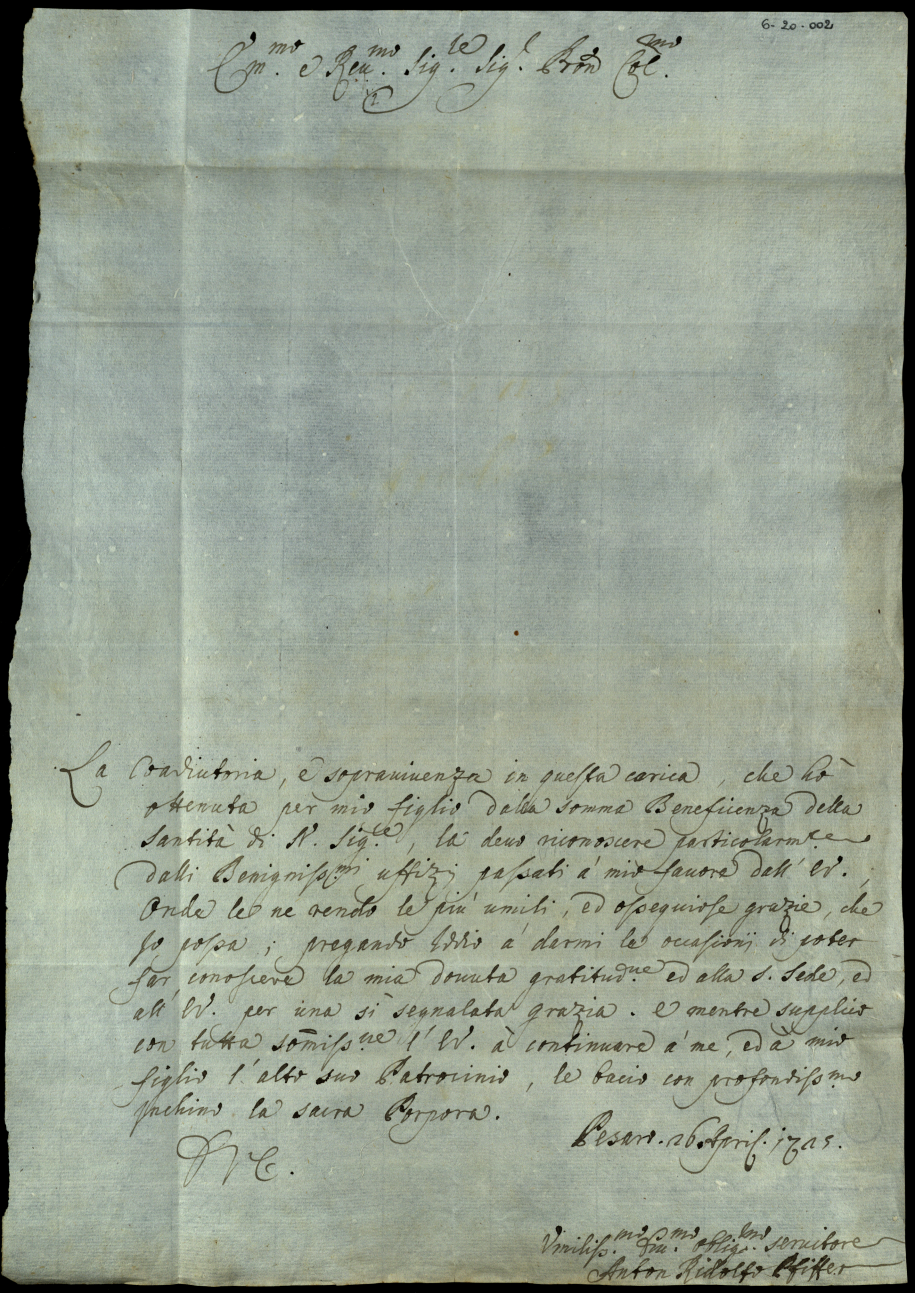 6-20-002
Em.mo e Reu.mo Sig.re Sig.r Pron Col.mo
La Coadiutoria, e sopraviuenza in questa carica, che hò
ottenuta per mio figlio dalla somma Beneficenza della
Santità di N. Sig.re, la deuo riconoscere particolarm.te
dalli Benigniss.mi uffizij passati a' mio fauore dall' EV.,
Onde le ne rendo le più umili, ed ossequiose grazie, che
Io possa; pregando Iddio a' darmi le occasioni di poter
far conoscere la mia douuta gratitud.ne ed alla S. Sede, ed
all' EV. per una sì segnalata grazia. e mentre supplico
con tutta somiss.ne l' EV. à continuare a' me, ed à mio
figlio l' alto suo Patrocinio, le bacio con profondiss.mo
Inchino la sacra Porpora.
Pesaro. 26 April. 1725.
DVE.
Vmiliss.mo Dm.o Oblig.mo seruitore
Anton Ridolfo Pfiffer